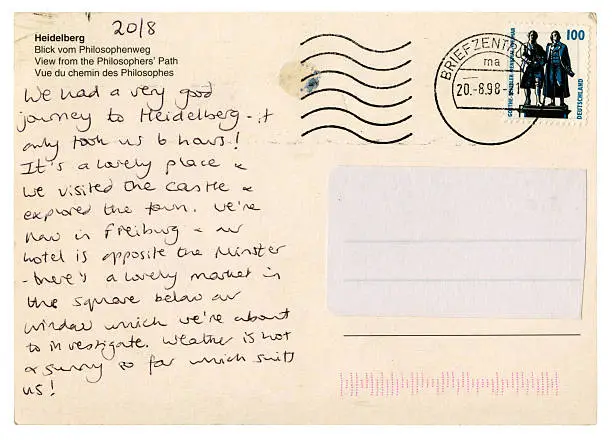 20/8
Heidelberg
Blick vom Philosophenweg
View from the Philosophers' Path
Vue du chemin des Philosophes
We had a very good
journey to Heidelberg - it
only took us 6 hours!
It's a lovely place &
we visited the castle &
explored the town. We're
now in Freiburg & our
hotel is opposite the Minster
- there's a lovely market in
the square below our
window which we're about
to investigate. Weather is hot
& sunny so far which suits
us!
BRIEFZENT
ma
20.-8.98-21
100
DEUTSCHLAND